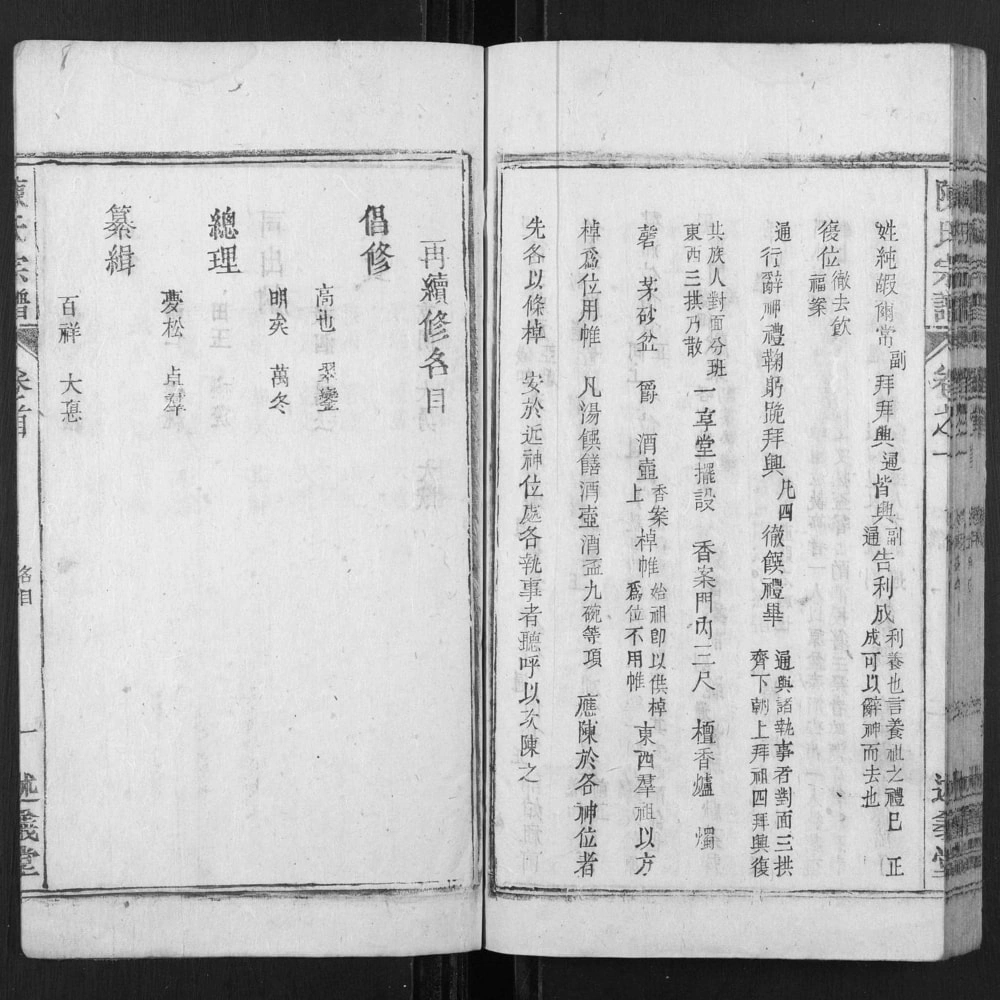 陳氏宗譜 卷之一 述義堂
姓純嘏爾常副拜拜興通皆興副通告利成利養也言養祖之禮已成可以辭神而去也正
復位徹去飲福案
通行辭神禮鞠躬跪拜興凡四徹饌禮畢通興諸執事者對面三拱齊下朝上拜祖四拜興復
共族人對面分班東西三拱乃散一享堂擺設 香案門內三尺 檀香爐 燭
磬 茅砂盆 爵 酒壺香案上棹帷始祖卽以供棹爲位不用帷東西羣祖以方
棹爲位用帷 凡湯饌饍酒壺酒盃九碗等項 應陳於各神位者
先各以條棹 安於近神位處各執事者聽呼以次陳之
再續修名目
倡修
高也 翠鑾
明矣 萬冬
總理
慶松 卓犖
纂緝
百祥 大憙
陳氏宗譜 卷首 名目 一 述義堂